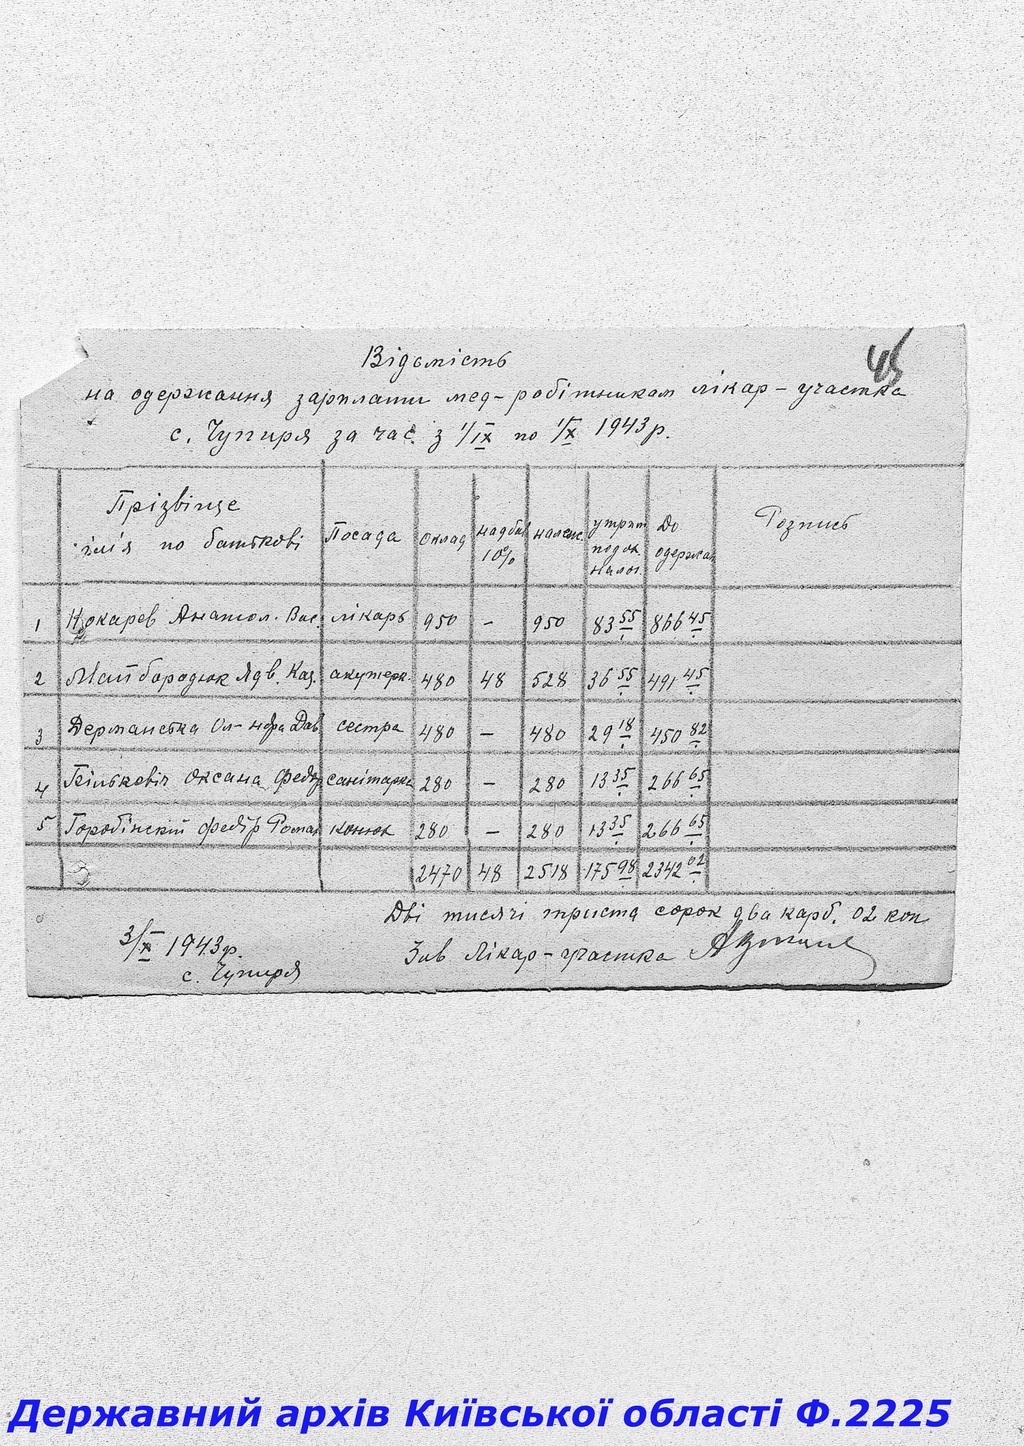 45
Відомість
на одержання зарплати мед-робітникам лікар-участка
с. Чупиря за час з 1/IX по 1/X 1943 р.
Прізвище імʼя по батькові Посада оклад надбав 10% належ. утрим подох. налог. До одержан Розпись
1 Кокарев Анатол. Вас. лікарь 950 – 950 83 55 866 45
2 Майбородюк Ядв. Каз. акушерк. 480 48 528 36 55 491 45
3 Дерманська Ол-ндра Дав сестра 480 – 480 29 18 450 82
4 Оксана Федор санітарка 280 – 280 13 35 266 65
5 Горобінский федір Роман конюх 280 – 280 13 35 266 65
2470 48 2518 175 98 2342 02
Дві тисячі триста сорок два карб. 02 коп
3/X 1943 р. Зав Лікар-участка
с. Чупиря
Державний архів Київської області Ф.2225